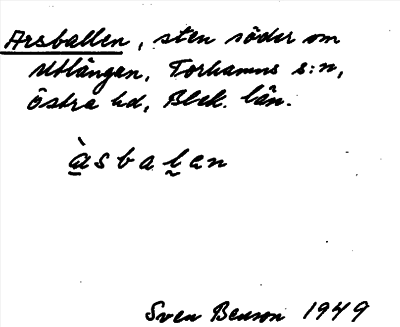 Arsballen, sten söder om
Utlängan, Torhamns s:n,
östra hd, Blek. län.
àsbalan
Sven Benson 1949